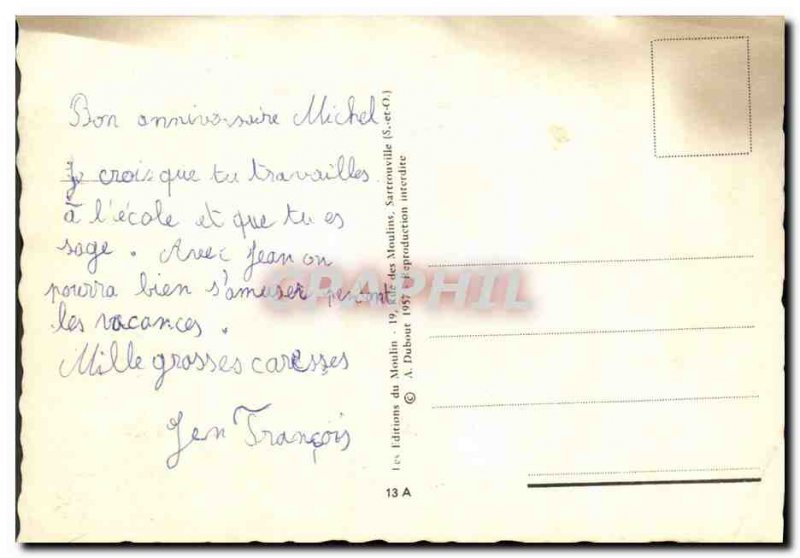 Bon anniversaire Michel
Je crois que tu travailles
à l'école et que tu es
sage. Avec Jean on
pourra bien s'amuser penant
les vacances.
Mille grosses caresses
Jen François
Les Editions du Moulin - 19, Rue des Moulins, Sartrouville (S.-et-O.)
© A. Dubout 1957 - Reproduction interdite
13 A
CPAPHIL